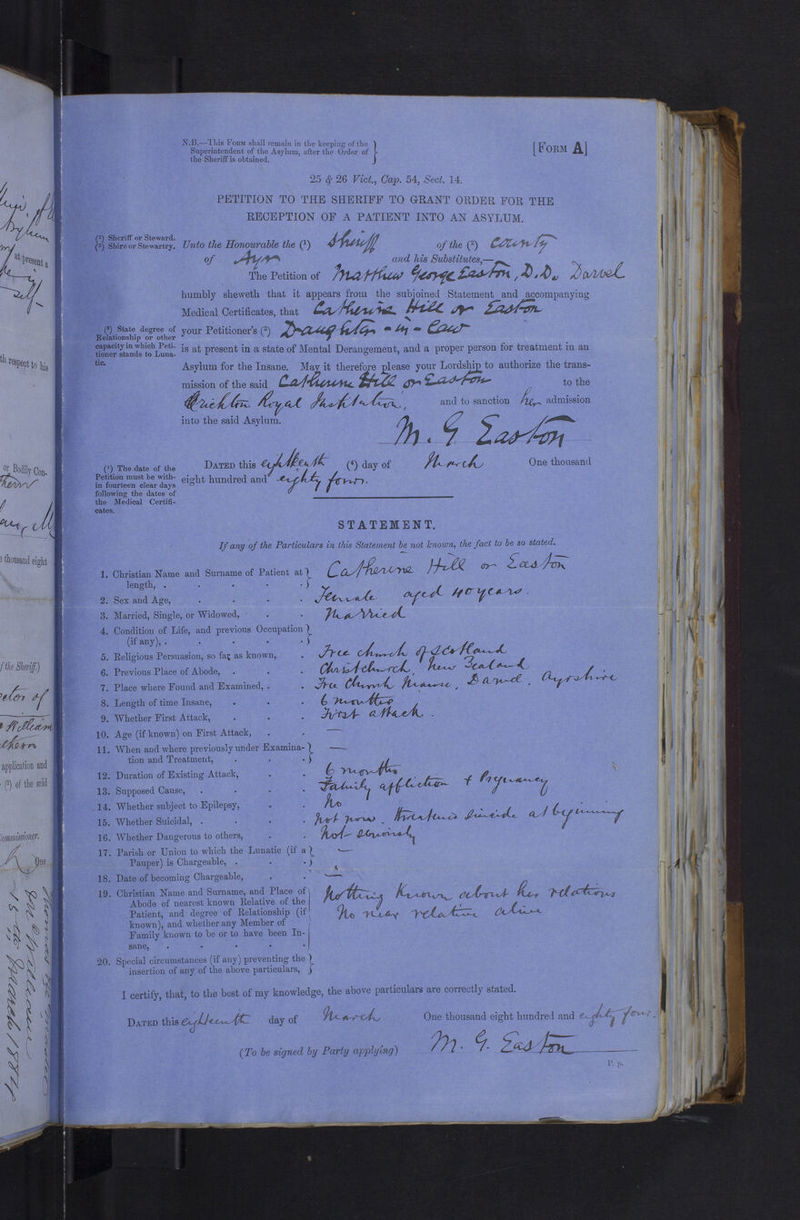 N.B.—This Form shall remain in the keeping of the
Superintendent of the Asylum, after the Order of
the Sheriff is obtained.
[Form A]
25 & 26 Vict., Cap. 54, Sect. 14.
PETITION TO THE SHERIFF TO GRANT ORDER FOR THE
RECEPTION OF A PATIENT INTO AN ASYLUM.
(1) Sheriff or Steward.
(2) Shire or Stewartry.
Unto the Honourable the (1) Sheriff of the (2) County
of Ayr and his Substitutes,—
The Petition of Matthew George Easton, D.D. Darvel
humbly sheweth that it appears from the subjoined Statement and accompanying
Medical Certificates, that Catherine Hill or Easton
(3) State degree of
Relationship or other
capacity in which Peti-
tioner stands to Luna-
tic.
your Petitioner's (3) Daughter-in-Law
is at present in a state of Mental Derangement, and a proper person for treatment in an
Asylum for the Insane. May it therefore please your Lordship to authorize the trans-
mission of the said Catherine Hill or Easton to the
Crichton Royal Institution, and to sanction her admission
into the said Asylum.
M. G Easton
(4) The date of the
Petition must be with-
in fourteen clear days
following the dates of
the Medical Certifi-
cates.
Dated this eighteenth (4) day of March One thousand
eight hundred and eighty four.
STATEMENT.
If any of the Particulars in this Statement be not known, the fact to be so stated.
1. Christian Name and Surname of Patient at length, . Catherine Hill or Easton
2. Sex and Age, Female aged 40 years.
3. Married, Single, or Widowed, Married
4. Condition of Life, and previous Occupation (if any), .
5. Religious Persuasion, so far as known, Free church of Scotland
6. Previous Place of Abode, . Christchurch, New Zealand
7. Place where Found and Examined, . Free Church Manse, Darvel, Ayrshire
8. Length of time Insane, 6 months
9. Whether First Attack, First attack.
10. Age (if known) on First Attack, —
11. When and where previously under Examina-
tion and Treatment, —
12. Duration of Existing Attack, 6 months
13. Supposed Cause, . Family affliction & Pregnancy
14. Whether subject to Epilepsy, No
15. Whether Suicidal, . Not now. Threatened suicide at beginning
16. Whether Dangerous to others, Not seriously
17. Parish or Union to which the Lunatic (if a
Pauper) is Chargeable, . —
18. Date of becoming Chargeable, —
19. Christian Name and Surname, and Place of
Abode of nearest known Relative of the
Patient, and degree of Relationship (if
known), and whether any Member of
Family known to be or to have been In-
sane,
Nothing known about her relations
No near relative alive
20. Special circumstances (if any) preventing the
insertion of any of the above particulars,
I certify, that, to the best of my knowledge, the above particulars are correctly stated.
Dated this eighteenth day of March One thousand eight hundred and eighty four.
(To be signed by Party applying) M. G. Easton
at present a
self-
th respect to his
or Bodily Con-
thousand eight
f the Sheriff.)
William
application and
(3) of the said
Commissioner.
One